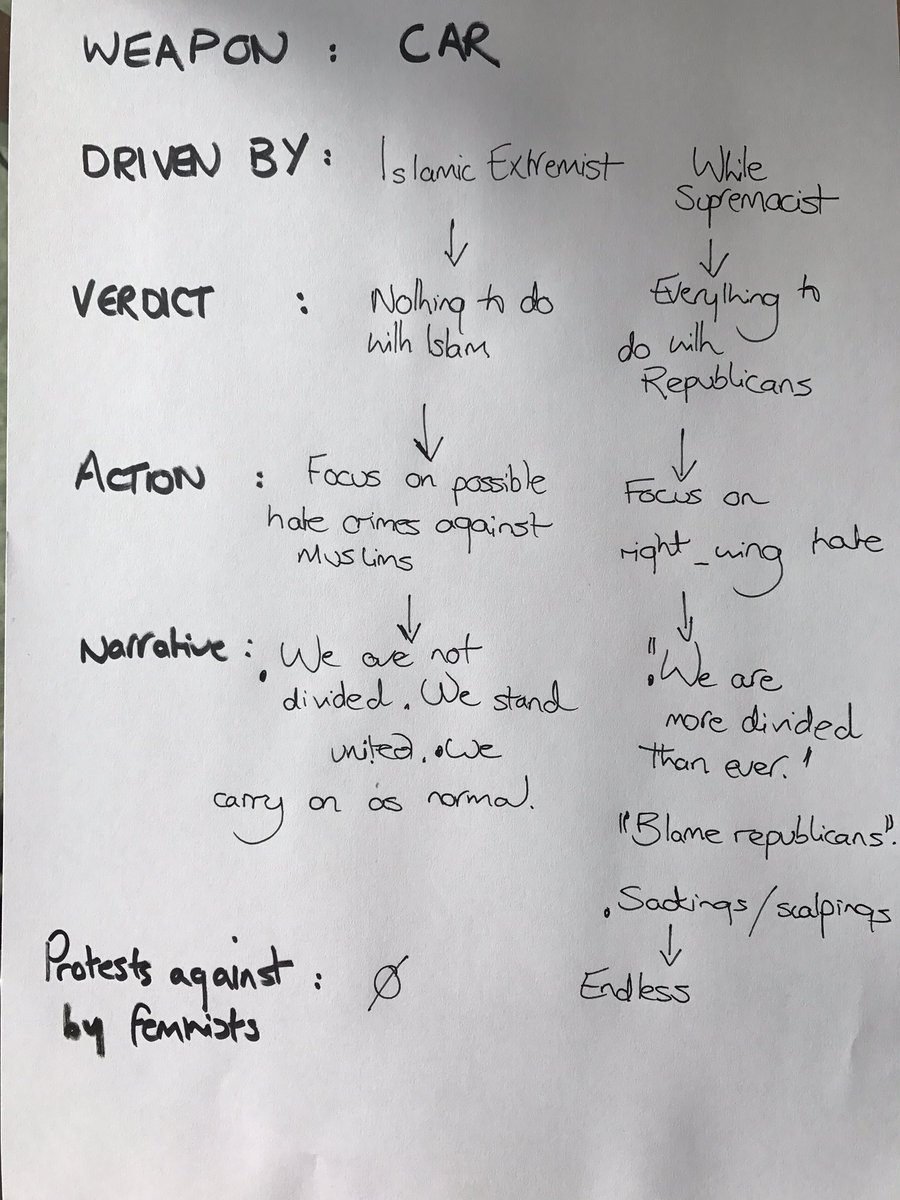 WEAPON : CAR
DRIVEN BY : Islamic Extremist
White
Supremacist
VERDICT : Nothing to do
with Islam
Everything to
do with
Republicans
ACTION : Focus on possible
hate crimes against
Muslims
Focus on
right_wing hate
Narrative : . We are not
divided. We stand
united. . We
carry on as normal.
". We are
more divided
than ever."
"Blame republicans".
. Sackings/scalpings
Protests against : Ø
by feminists
Endless